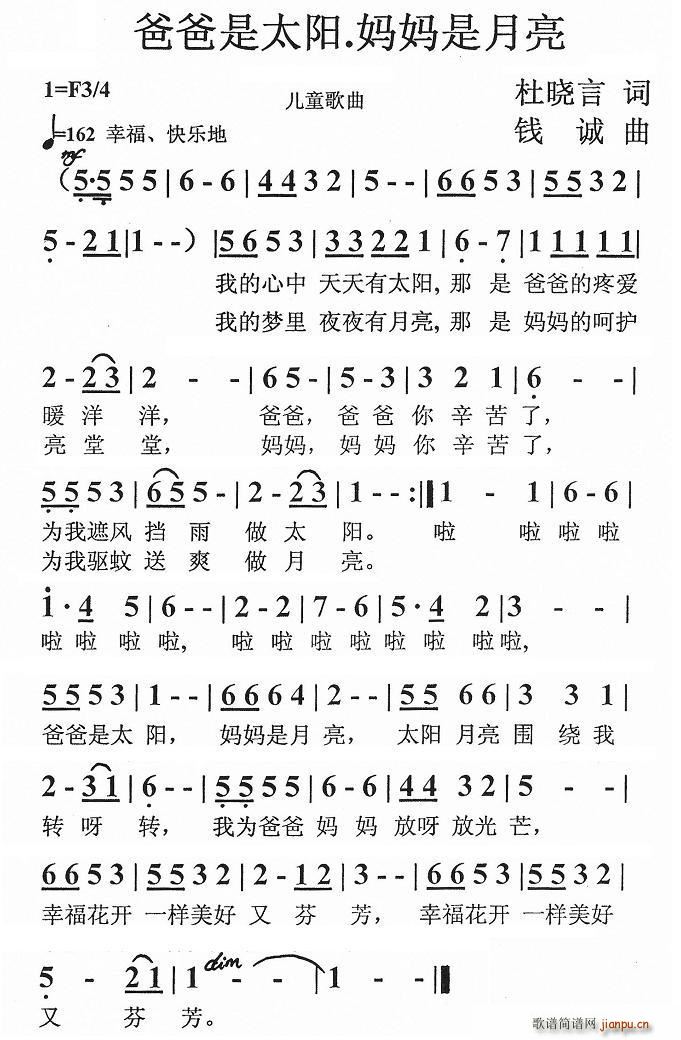 爸爸是太阳.妈妈是月亮
1=F3/4
儿童歌曲
杜晓言 词
=162 幸福、快乐地
钱 诚 曲
mf
（5·5 5 5|6 - 6|4 4 3 2|5 - -|6 6 5 3|5 5 3 2|
5 - 2 1|1 - -）|5 6 5 3|3 3 2 2 1|6 - 7|1 1 1 1 1|
我的心中 天天有太阳, 那 是 爸爸的疼爱
我的梦里 夜夜有月亮, 那 是 妈妈的呵护
2 - 2 3|2 - -|6 5 -|5 - 3|3 2 1|6 - -|
暖 洋 洋， 爸爸, 爸 爸 你 辛 苦 了,
亮 堂 堂， 妈妈, 妈 妈 你 辛 苦 了,
5 5 5 3|6 5 5 -|2 - 2 3|1 - - :‖1 - 1|6 - 6|
为我遮风 挡 雨 做 太 阳。 啦 啦 啦 啦
为我驱蚊 送 爽 做 月 亮。
1 · 4 5|6 - -|2 - 2|7 - 6|5 · 4 2|3 - -|
啦 啦 啦 啦, 啦 啦 啦 啦 啦 啦 啦啦,
5 5 5 3|1 - -|6 6 6 4|2 - -|5 5 6 6|3 3 1|
爸爸是太 阳， 妈妈是月 亮， 太阳 月亮 围 绕 我
2 - 3 1|6 - -|5 5 5 5|6 - 6|4 4 3 2|5 - -|
转 呀 转， 我为爸爸 妈 妈 放呀 放光 芒，
6 6 5 3|5 5 3 2|2 - 1 2|3 - -|6 6 5 3|5 5 3 2|
幸福花开 一样美好 又 芬 芳， 幸福花开 一样美好
dim
5 - 2 1|1 - -|1 - -‖
又 芬 芳。
歌谱简谱网 jianpu.cn